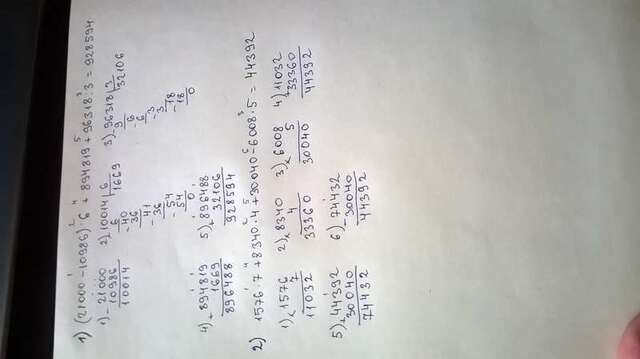 1) (21000 - 10986) : 6 + 894819 + 96318 : 3 = 928594
1 2 4 5 3
1) - 21000 2) 10014 | 6 3) 96318 | 3
10986 6 1669 9 32106
10014 - 40 - 6
36 6
- 41 - 3
36 3
- 54 - 18
54 18
0 0
4) + 894819 5) + 896488
1669 32106
896488 928594
2) 1576 · 7 + 8340 · 4 + 30040 - 6008 · 5 = 44392
1 4 2 5 6 3
1) × 1576 2) × 8340 3) × 6008 4) + 11032
7 4 5 33360
11032 33360 30040 44392
5) + 44392 6) - 74432
30040 30040
74432 44392